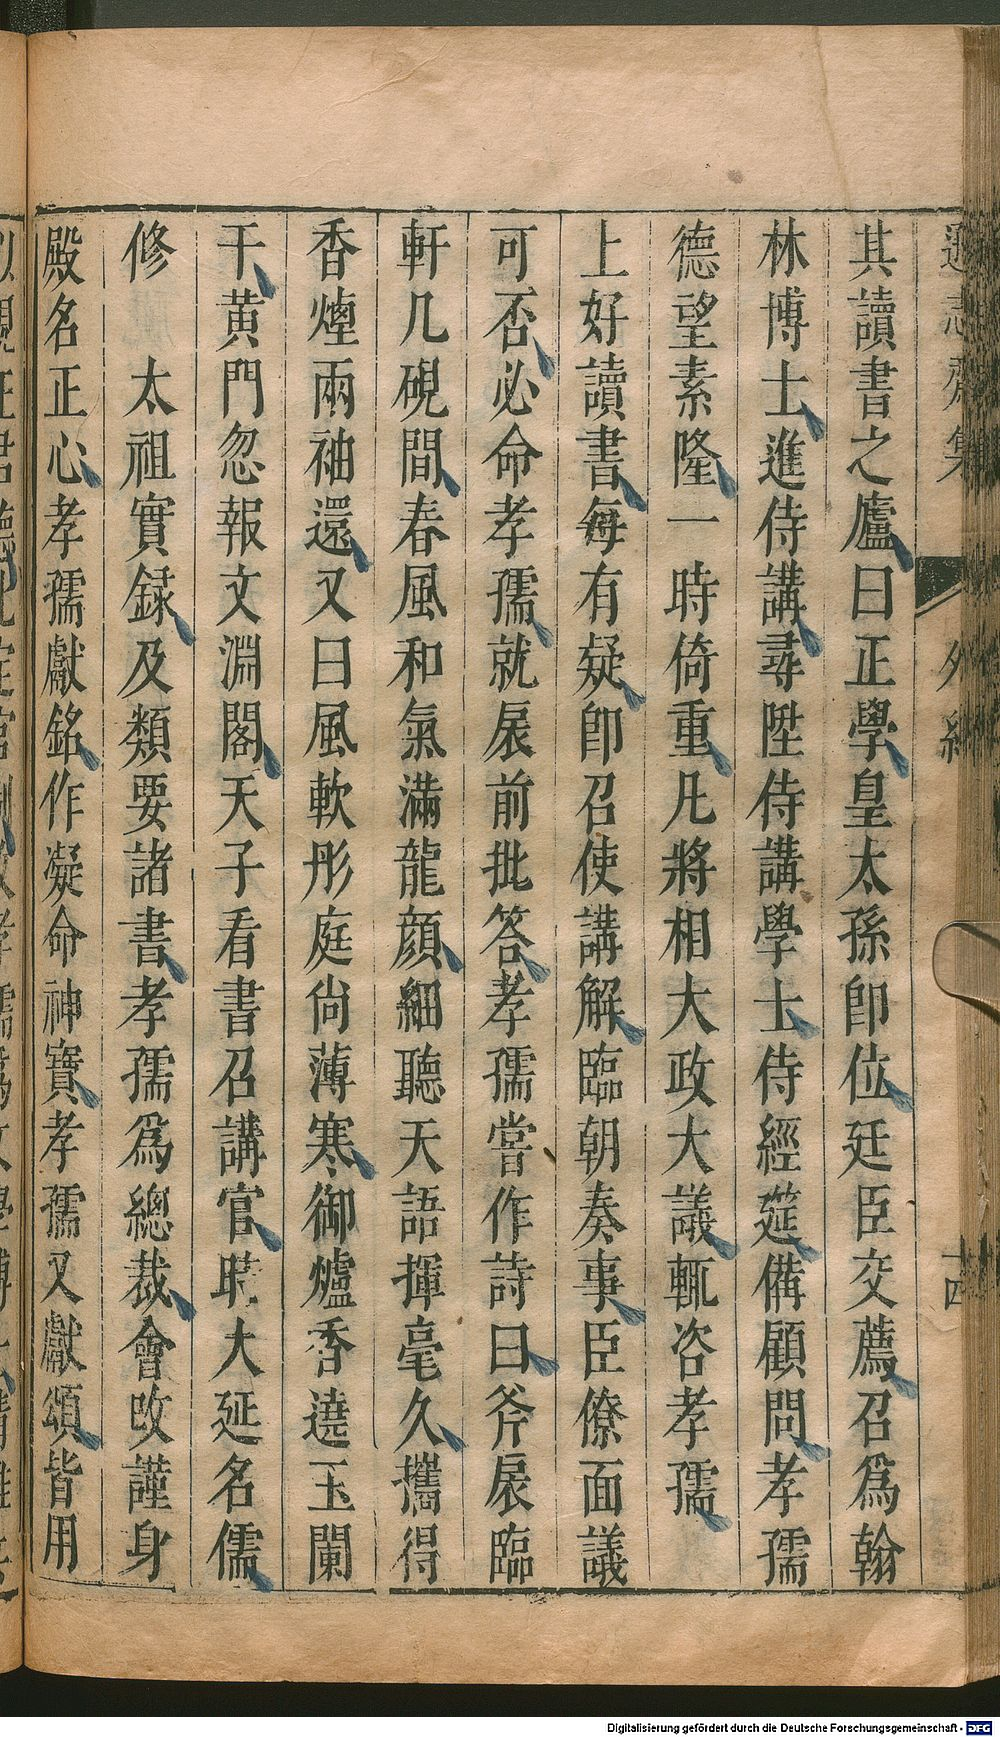 其讀書之廬曰正學皇太孫卽位廷臣交薦召爲翰
林博士進侍講尋陞侍講學士侍經筵備顧問孝孺
德望素隆一時倚重凡將相大政大議輒咨孝孺
上好讀書每有疑卽召使講解臨朝奏事臣僚面議
可否必命孝孺就扆前批答孝孺嘗作詩曰斧扆臨
軒几硯間春風和氣滿龍顔細聽天語揮毫久攜得
香煙兩袖還又曰風軟彤庭尙薄寒御爐香遶玉闌
干黃門忽報文淵閣天子看書召講官時大延名儒
修　太祖實録及類要諸書孝孺爲總裁會改謹身
殿名正心孝孺獻銘作凝命神寶孝孺又獻頌皆用
外紀
十四
Digitalisierung gefördert durch die Deutsche Forschungsgemeinschaft - DFG